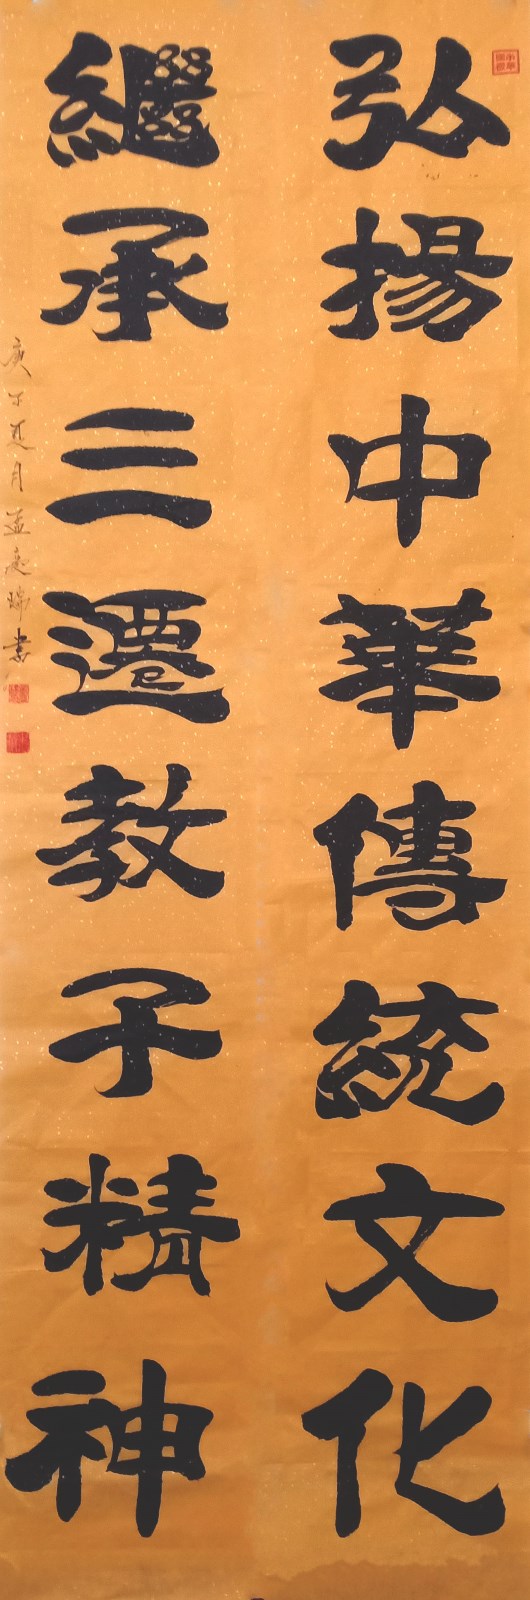 弘揚中華傳統文化
繼承三遷教子精神
庚子夏月孟慶瑞書